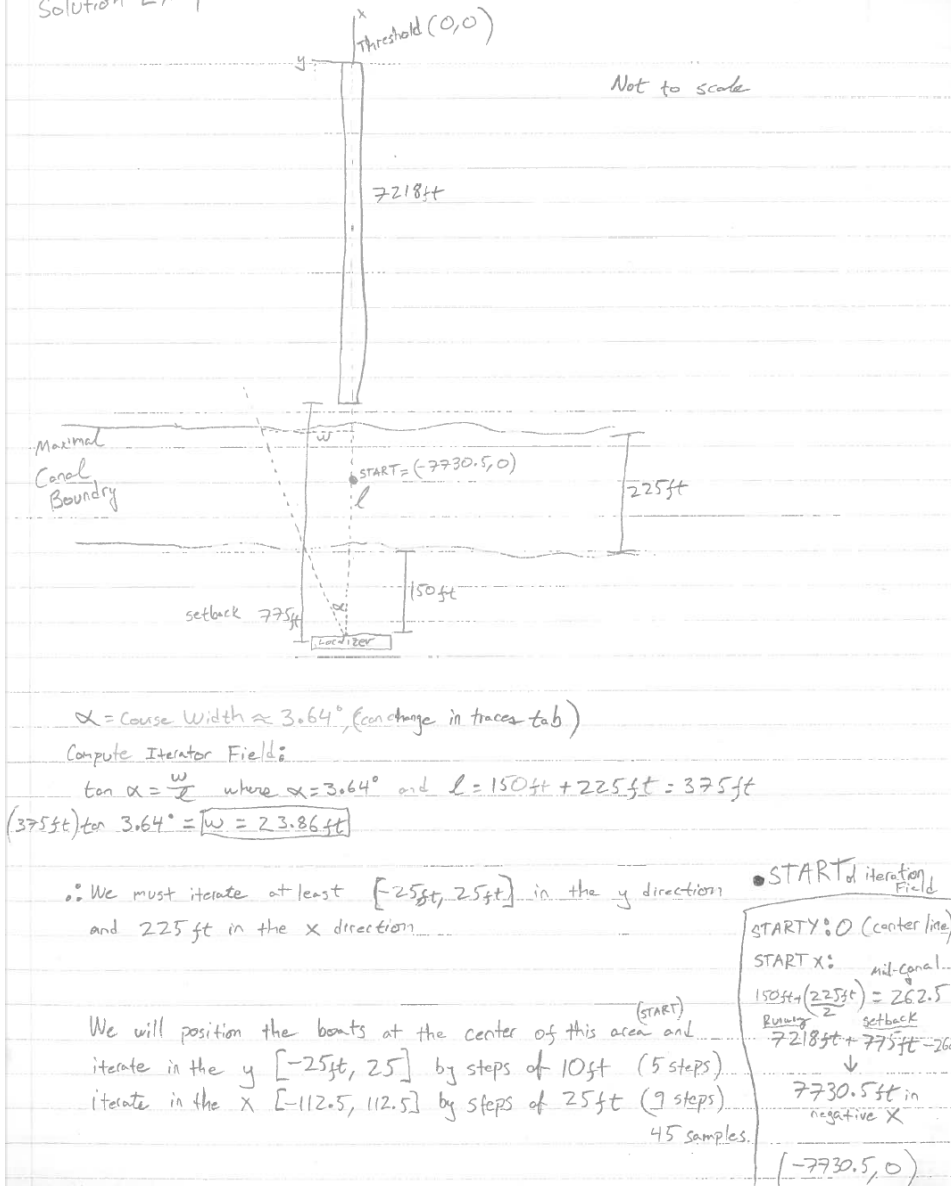 Solution
x
Threshold (0,0)
y
Not to scale
7218ft
Maximal
Canal
Boundry
w
START = (-7730.5, 0)
l
225ft
150ft
setback 775ft
α
Localizer
α = Couse Width ≈ 3.64°, (can change in traces tab)
Compute Iterator Field:
tan α = w/l where α = 3.64° and l = 150ft + 225ft = 375ft
(375ft) tan 3.64° = w = 23.86ft
∴ We must iterate at least [-25ft, 25ft] in the y direction
and 225ft in the x direction
We will position the boats at the center of this area (START) and
iterate in the y [-25ft, 25] by steps of 10ft (5 steps)
iterate in the x [-112.5, 112.5] by steps of 25ft (9 steps)
45 samples.
• START of iteration Field
STARTY: 0 (center line)
START X:
Mid-Canal
150ft + (225ft)/2 = 262.5
Runway setback
7218ft + 775ft - 26
↓
7730.5ft in
negative X
(-7730.5, 0)